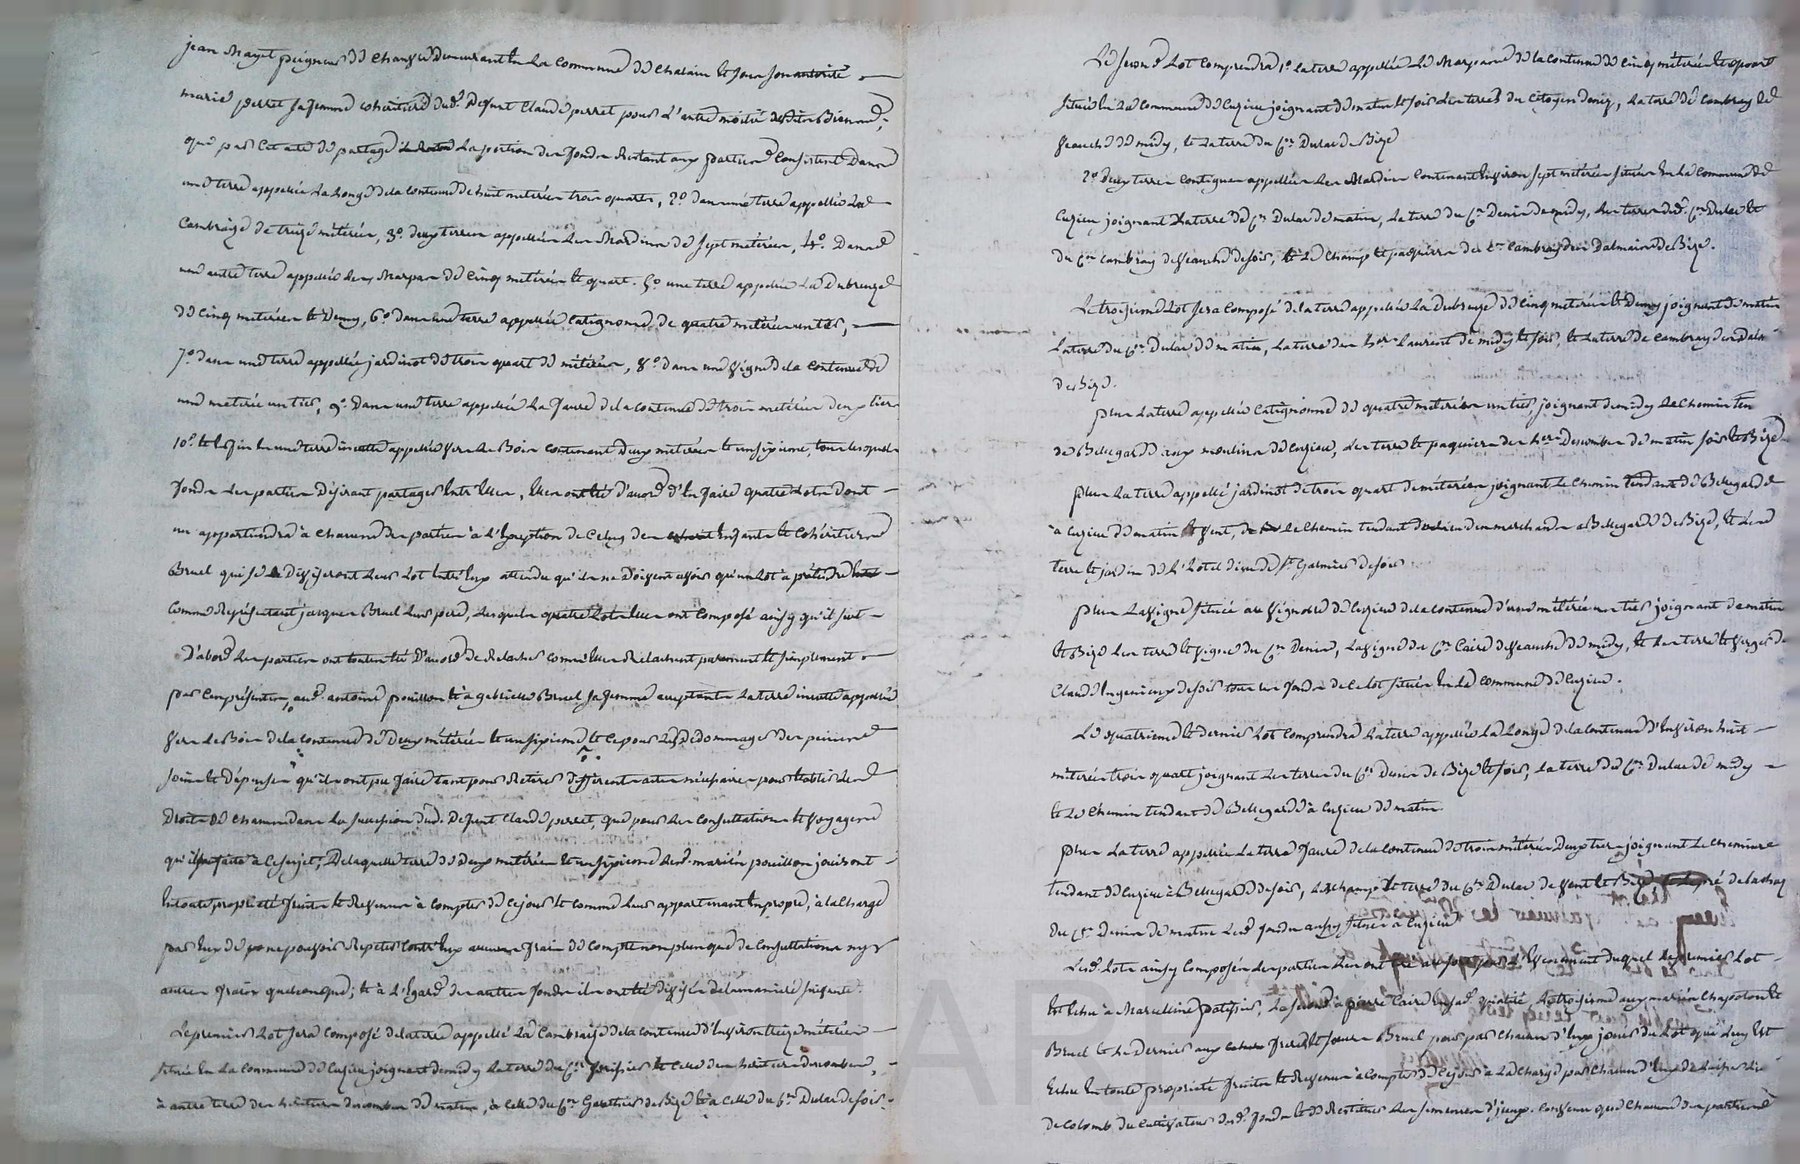 jean Mayet peigneur de chanvre demeurant en la commune de chatain et sous son autorité
marie perret sa femme cohéritière dud. defunt Claude perret pour l'autre moitié
que par cet acte de partage la portion des fonds restant aux parties consistent dans
une terre appellée La Longe de la contenue de huit meterées trois quarts, 2o dans une terre appellée La
Cambraize de treize meterées, 3o deux terres appellées Les Mardines de sept meterées, 4o Dans
une autre terre appellée des Marpans de cinq meterées et quart. 5o une terre appellée La Dubreuze
de cinq meterées et demy, 6o dans une terre appellée Catignonne de quatre meterées un tier,
7o dans une terre appellée jardinot de trois quart de meterée, 8o dans une vigne de la contenue de
une meterée un tier, 9o Dans une terre appellée La faure de la contenue de trois meterées deux tiers
10o et enfin en une terre inculte appellée vers Le Bois contenant deux meterées et un sixieme, tous lesquels
fonds Les parties desirant partager entr'elles, elles ont été d'avord d'en faire quatre Lots dont
un appartiendra à chacune des parties à l'exception de celuy des enfants et cohéritiers
Bruel qui se diviseront leur Lot entr'eux attendu qu'ils ne doivent avoir qu'un Lot à prétendre
comme representant jacques Bruel leur pere, Lesquels quatre Lots elles ont composé ainsy qu'il suit
D'abord Les parties ont toutes été d'avord de relacher comme elles relachent purement et simplement
par ces présentes, aud. antoine pouillon et à gabrielle Bruel sa femme acceptants La terre inculte appellée
vers Le Bois de la contenue de Deux meterées et un sixieme et ce pour Les dedommager des peines
soins et depenses qu'ils ont pu faire tant pour retirer différents actes nécessaires pour etablir les
Droits de chacun dans la succession dud. Defunt Claude perret, que pour Les consultations et voyages
qu'ils ont faits à ce sujet, De laquelle terre de deux meterées et un sixieme Lesd. mariés pouillon jouiront
en toute propriété fruits et revenus à compter de ce jour et comme leur appartenant en propre, à la charge
par eux de ne pouvoir repeter contr'eux aucuns frais de compte non plus que de consultations ny
autres frais quelconque; et à l'égard des autres fonds ils ont été divisés de la maniere suivante.
Le premier Lot sera composé de la terre appellée La Cambraise de la contenue d'environ treize meterées
située en La commune de Cuzieu joignant de midy La terre du Cen et celle des héritiers desombre,
à autre terre des héritiers desombre de matin, à celle du Cen Gauthier de Bize et à celle du Cen Dulac de soir.
Le second Lot comprendra 1o la terre appellée Le Marpand de la contenue de cinq meterées et quart
située en La commune de Cuzieu joignant de matin et soir Les terres du Citoyen Denis, La terre de Cambray de
veauche de midy, et La terre du Cen Dulac de Bize
2o deux terres contigues appellées Les Mardines contenant environ sept meterées situées en La commune de
Cuzieu joignant La terre du Cen Dulac de matin, La terre du Cen Denis de midy, Les terres dud. Cen Dulac et
du Cen Cambray de veauche de soir, et Le champ et paquier des Cens Cambray de Bize.
Le troisieme Lot sera composé de la terre appellée La Dubreuze de cinq meterées et demy joignant de matin
La terre du Cen Dulac de matin, La terre des hers Laurent de midy et soir, et La terre de Cambray
de Bize.
plus La terre appellée Catignonne de quatre meterées un tier, joignant de midy Le chemin
de Bellegarde aux moulins de Cuzieu, Les terres et paquiers des hers Desombre de matin soir et Bize
plus La terre appellé jardinot de trois quart de meterées joignant Le chemin tendant de Bellegarde
à Cuzieu de matin et vent, Le chemin tendant des marchands a Bellegarde de Bize, et Les
terre et jardin de L'hotel dieu de St Galmier de soir
plus La vigne située au vignoble de Cuzieu de la contenue d'une meterée un tier joignant de matin
et Bize Les terre et vigne du Cen Denis, La vigne du Cen Caire de veauche de midy, et Les terre et verger de
Claude Ingenieux de soir tous les fonds de ce lot situés en La commune de Cuzieu.
Le quatrieme et dernier Lot comprendra La terre appellée La Longe de la contenue d'environ huit
meterées trois quart joignant Les terres du Cen Denis de Bize et soir, La terre du Cen Dulac de midy
et Le chemin tendant de Bellegarde à Cuzieu de matin
plus La terre appellée La terre faure de la contenue de trois meterées deux tiers joignant Le chemin
tendant de Cuzieu à Bellegarde de soir, Le champ et terre du Cen Dulac de vent et Bize
du Cen Denis de matin Lesd. fonds aussy situés à Cuzieu
Lesd. Lots ainsy composés Les parties Les ont tiré au sort par L'evenement duquel Le premier Lot
est echu à Marcelline patissier, Le second à pierre Caire, Le troisieme aux mariés Chapoton et
Bruel et Le Dernier aux frere et soeur Bruel pour par chacun d'eux jouir du Lot qui leur est
echu en toute propriété fruits et revenus à compter de ce jour à La charge par chacun d'eux de laisser
de colomb du cultivateur desd. fonds et de restituer Les semences d'iceux. Convenu que chacune des parties